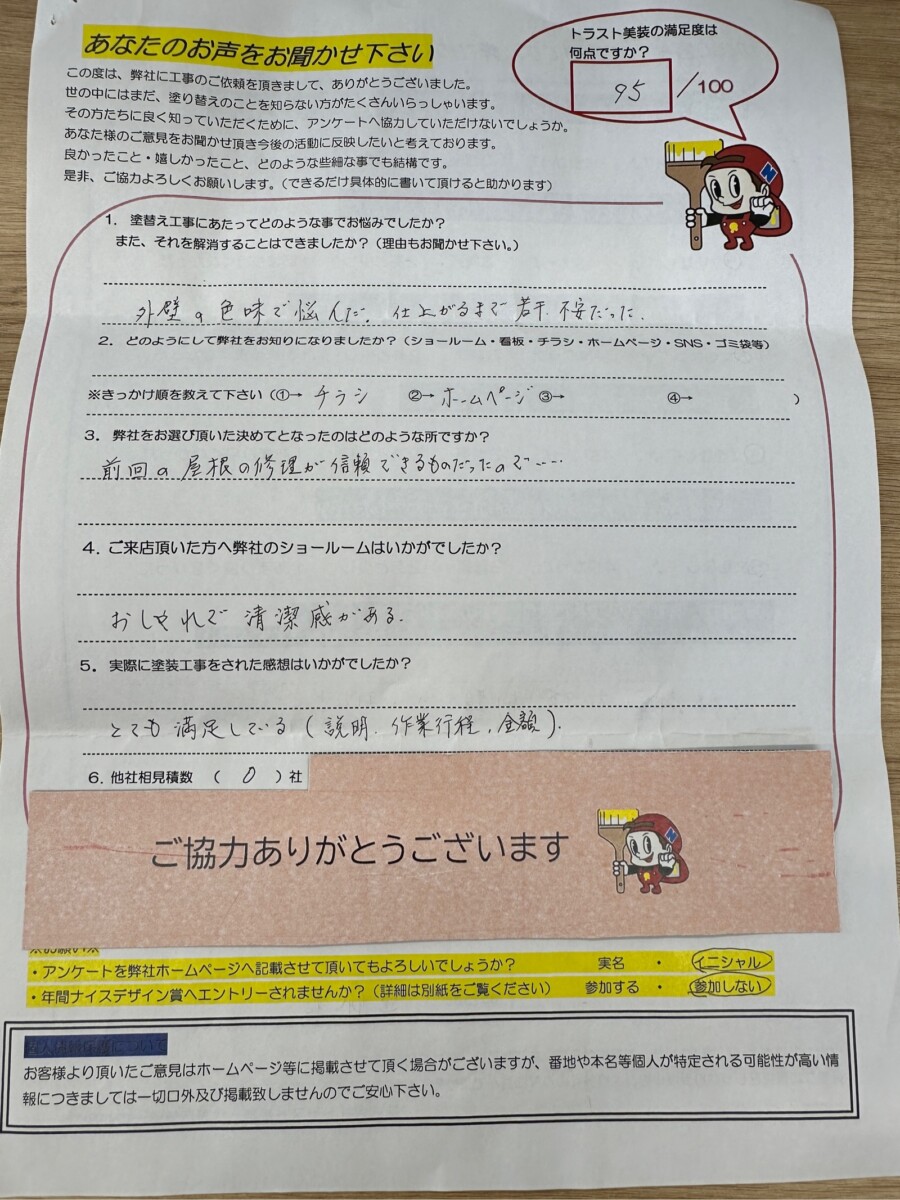 あなたのお声をお聞かせ下さい
トラスト美装の満足度は
何点ですか？
95 /100
この度は、弊社に工事のご依頼を頂きまして、ありがとうございました。
世の中にはまだ、塗り替えのことを知らない方がたくさんいらっしゃいます。
その方たちに良く知っていただくために、アンケートへ協力していただけないでしょうか。
あなた様のご意見をお聞かせ頂き今後の活動に反映したいと考えております。
良かったこと・嬉しかったこと、どのような些細な事でも結構です。
是非、ご協力よろしくお願いします。（できるだけ具体的に書いて頂けると助かります）
1. 塗替え工事にあたってどのような事でお悩みでしたか？
また、それを解消することはできましたか？（理由もお聞かせ下さい。）
外壁の色味で悩んだ。仕上がるまで若干不安だった。
2. どのようにして弊社をお知りになりましたか？（ショールーム・看板・チラシ・ホームページ・SNS・ゴミ袋等）
※きっかけ順を教えて下さい（①→ チラシ ②→ ホームページ ③→ ④→ ）
3. 弊社をお選び頂いた決めてとなったのはどのような所ですか？
前回の屋根の修理が信頼できるものだったので……
4. ご来店頂いた方へ弊社のショールームはいかがでしたか？
おしゃれで清潔感がある。
5. 実際に塗装工事をされた感想はいかがでしたか？
とても満足している（説明、作業行程、金額）.
6. 他社相見積数 （ 0 ）社
ご協力ありがとうございます
※お願い※
・アンケートを弊社ホームページへ記載させて頂いてもよろしいでしょうか？ 実名 ・ イニシャル
・年間ナイスデザイン賞へエントリーされませんか？（詳細は別紙をご覧ください） 参加する ・ 参加しない
お客様より頂いたご意見はホームページ等に掲載させて頂く場合がございますが、番地や本名等個人が特定される可能性が高い情
報につきましては一切口外及び掲載致しませんのでご安心下さい。